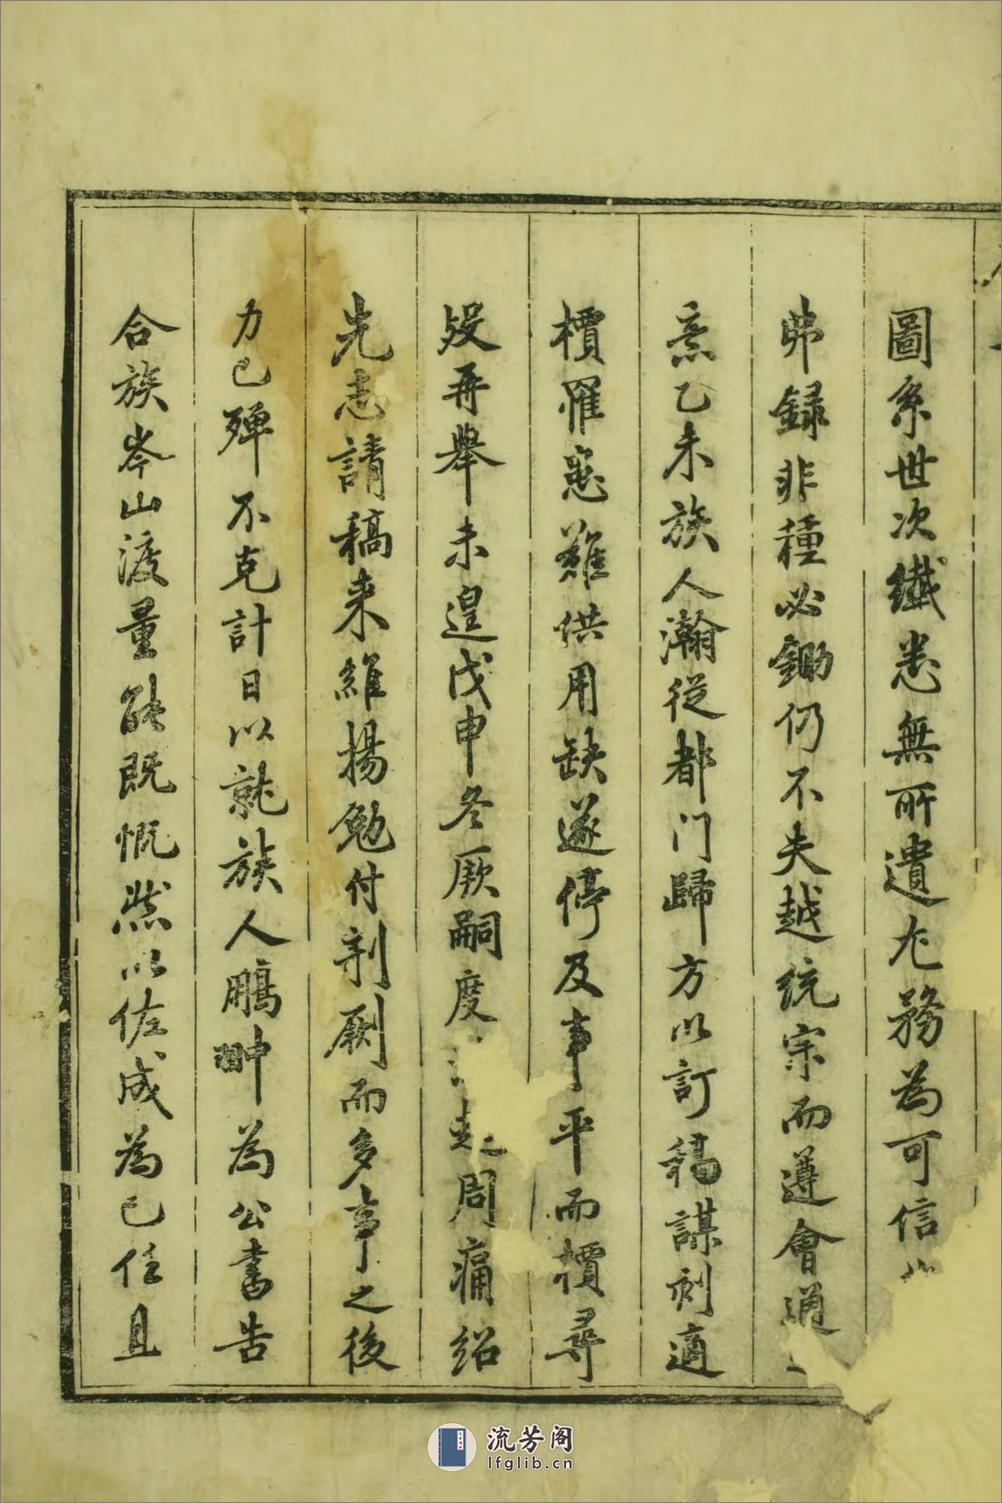 圖系世次纖悉無所遺尤務為可信
弗録非種必鋤仍不失越統宗而遵會通
意乙未族人瀚從都門歸方以訂稿謀刻適
櫝罹寇難供用缺遂停及事平而櫝尋
歿再舉未遑戊申冬厥嗣度 周痛紹
先志請稿来維揚勉付剞劂而多事之後
力已殫不克計日以就族人鵬翀為公書告
合族岑山渡量能既慨然以佐成為已任且
流芳阁
lfglib.cn